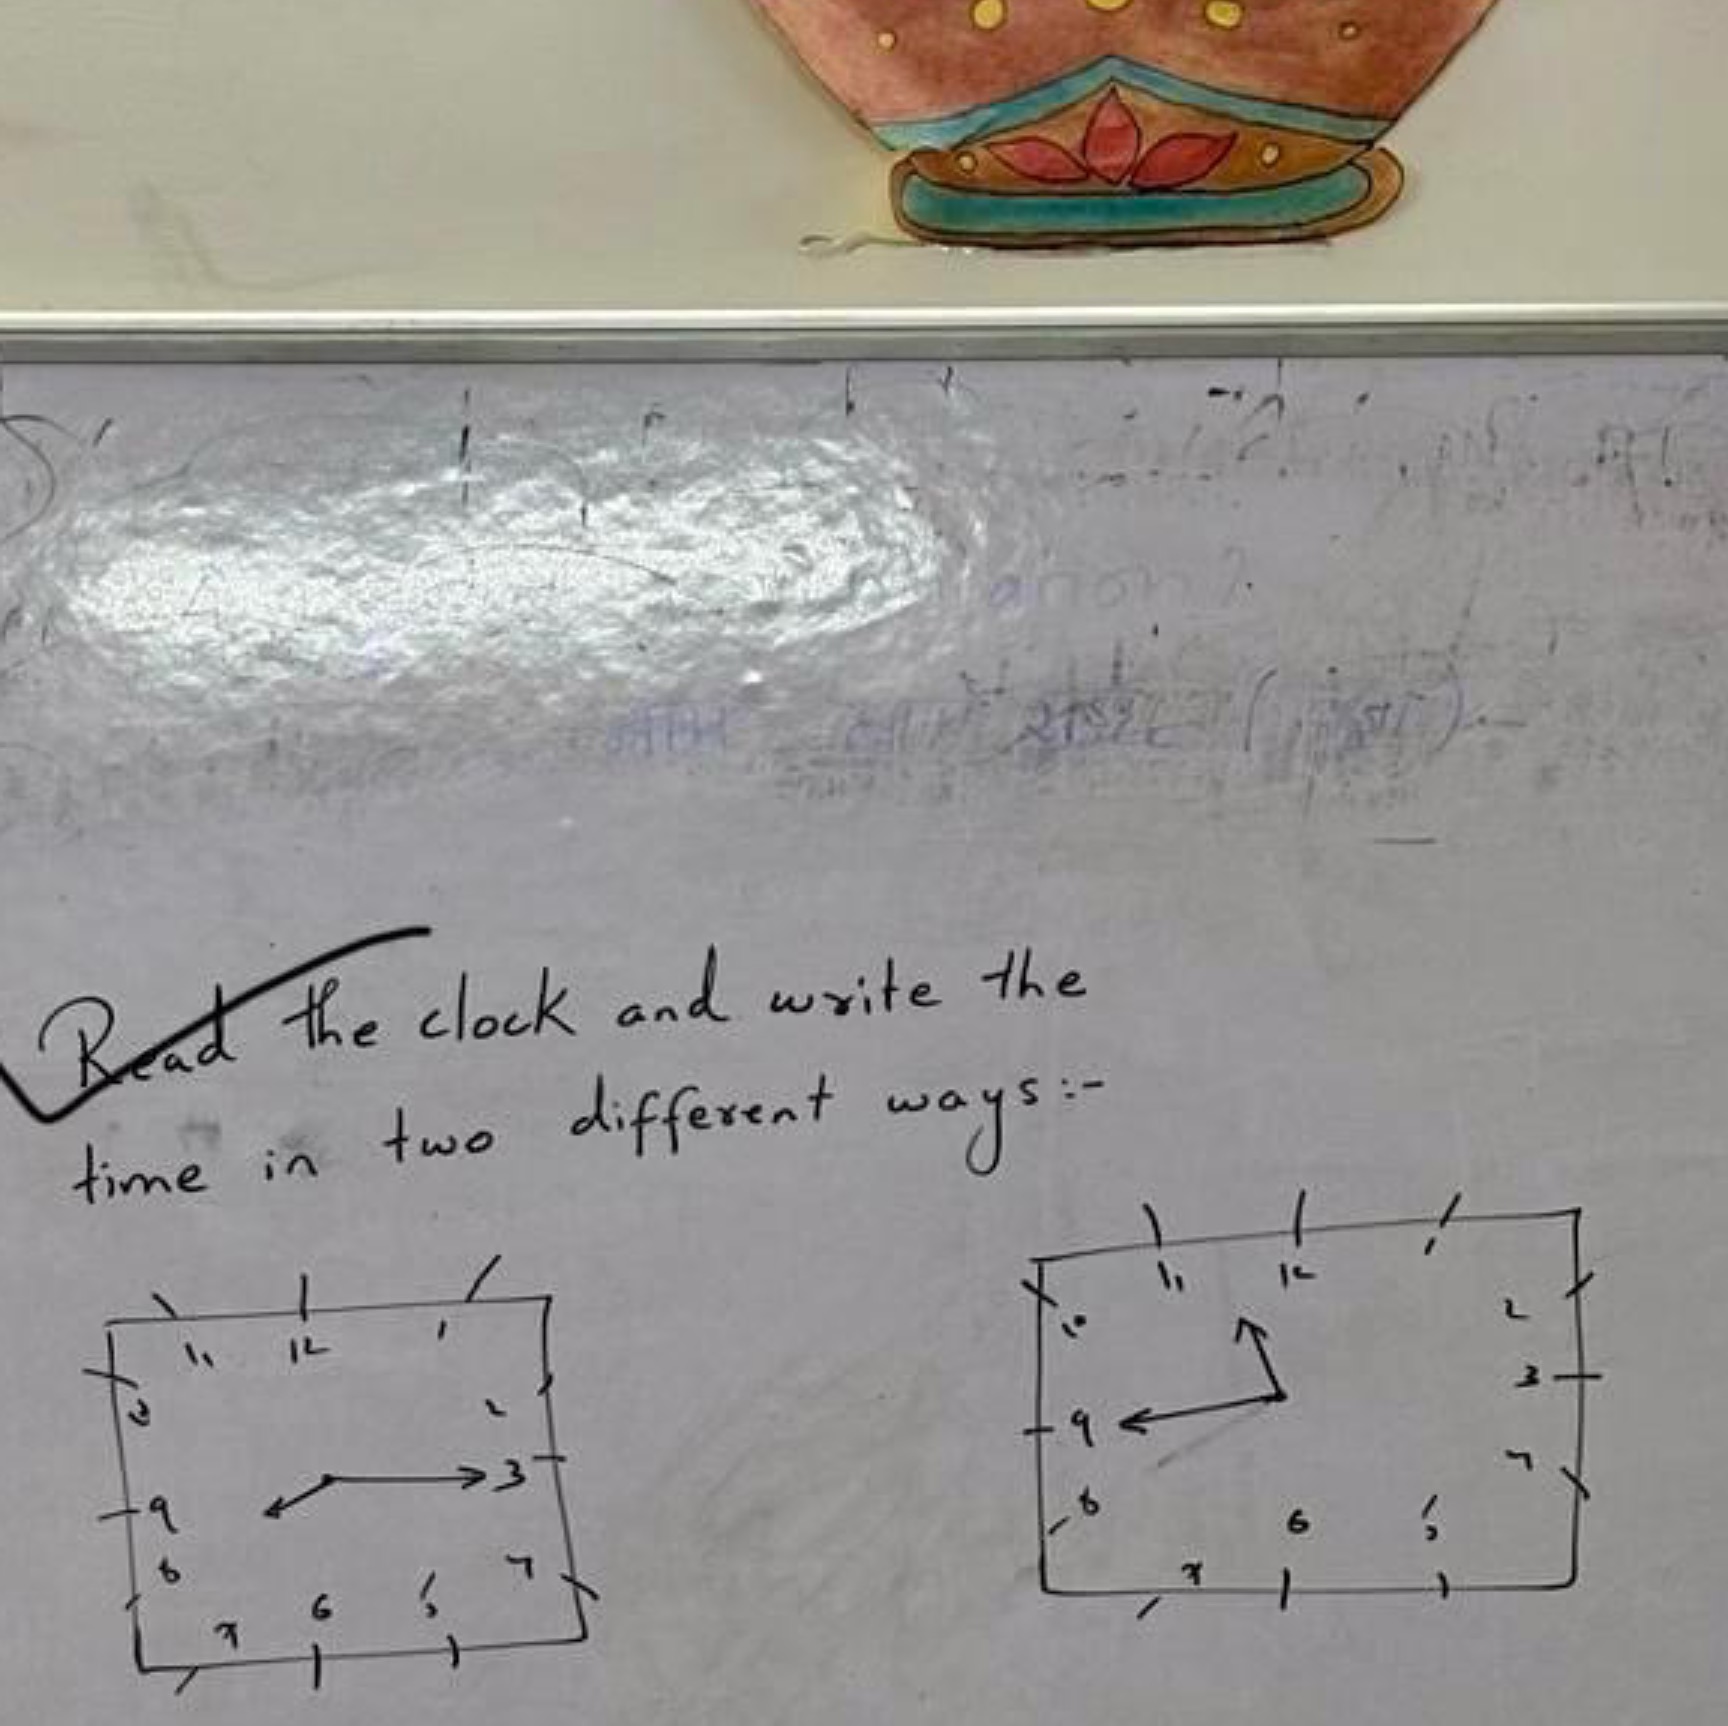 Read the clock and write the
time in two different ways:-
11 12 1
10 2
9 3
8 4
7 6 5
11 12 1
10 2
9 3
8 4
7 6 5